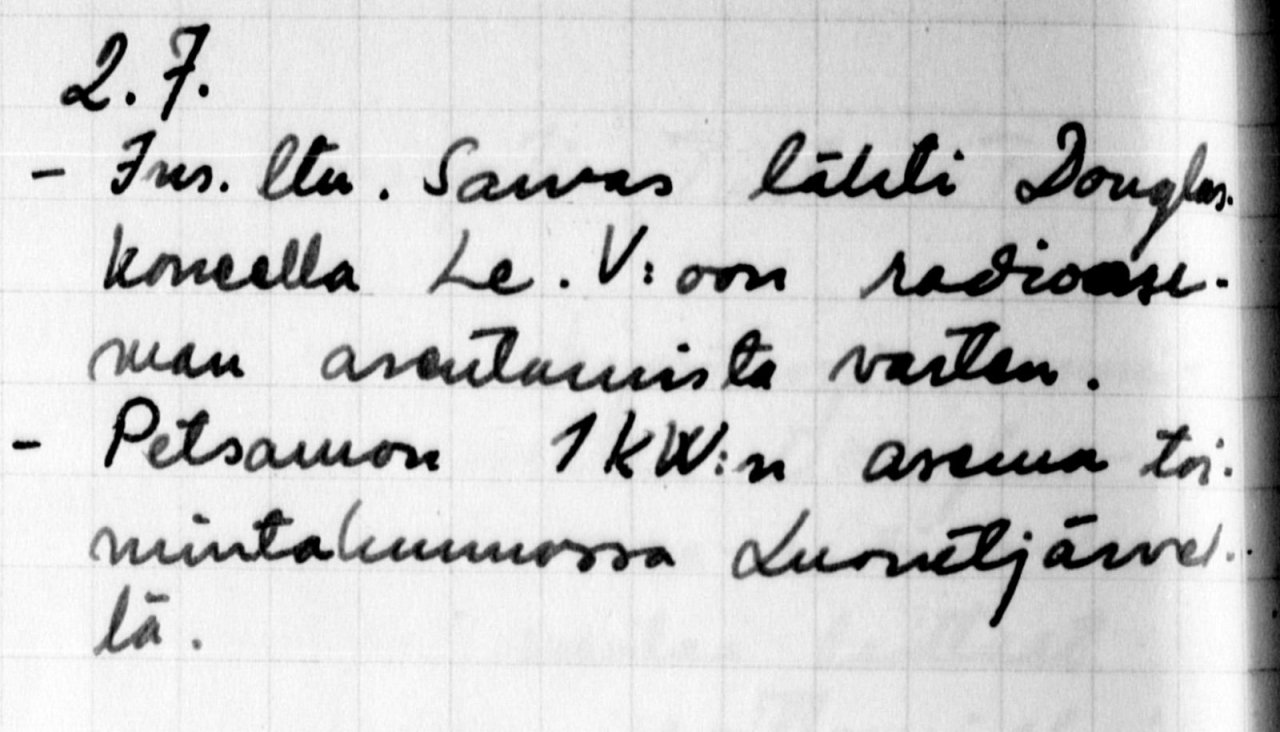 2.7.
- Ins. ltn. Sarvas lähti Douglas-
koneella Le. V:oon radioase-
man asentamista varten.
- Petsamon 1 kW:n asema toi-
mintakunnossa Luonetjärvel-
lä.